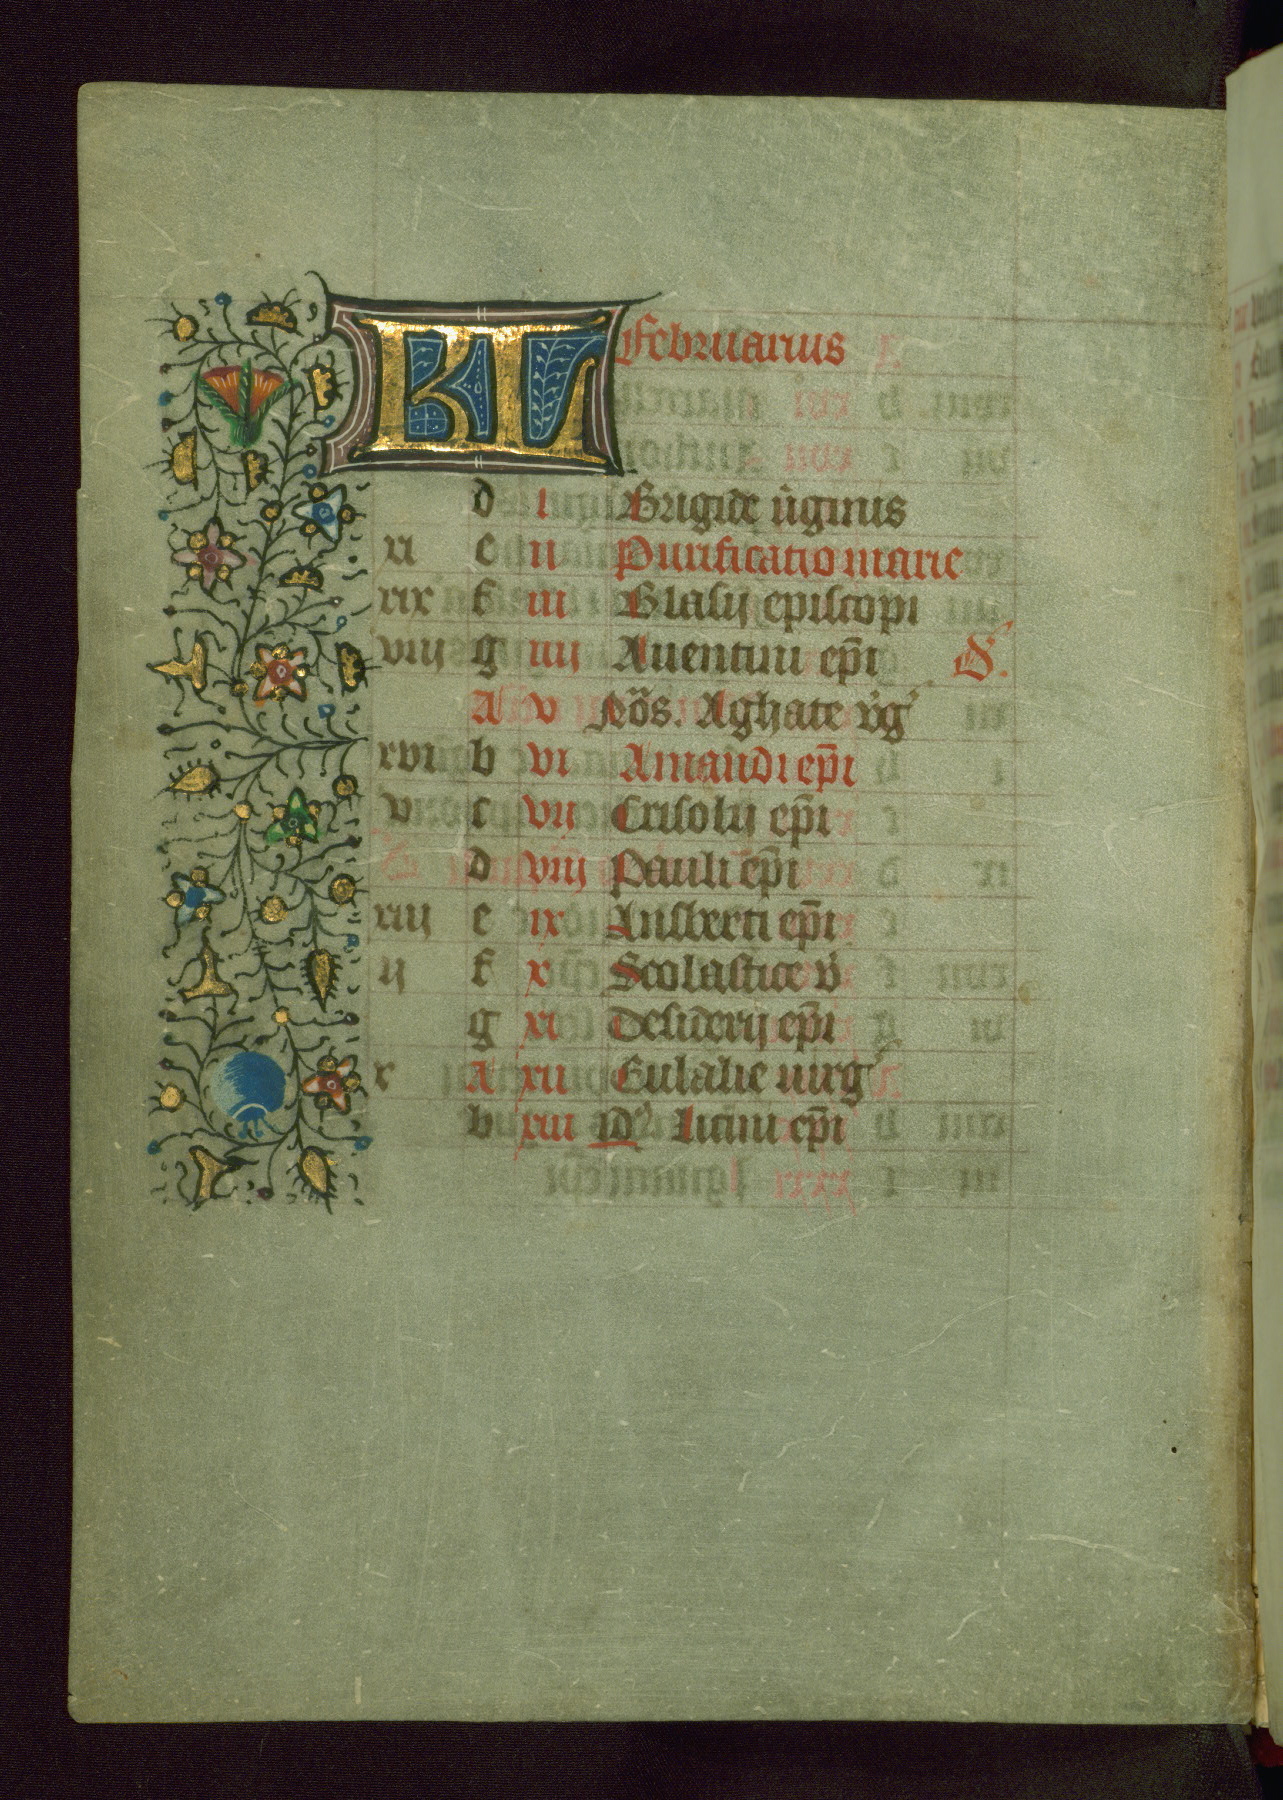 KL Februarius
d i Brigide ūginis
xi e ii Purificatio marie
xix f iii Blasij episcopi
viij g iiij Auentini ep̄i S.
A v Nōs. Aghate v̄g
xvi b vi Amandi ep̄i
v c vij Crisolij ep̄i
d viij Pauli ep̄i
xiij e ix Ansberti ep̄i
ij f x Scolastice v̄
g xi Desiderij ep̄i
x A xii Eulalie uirg
b xiii Licini ep̄i